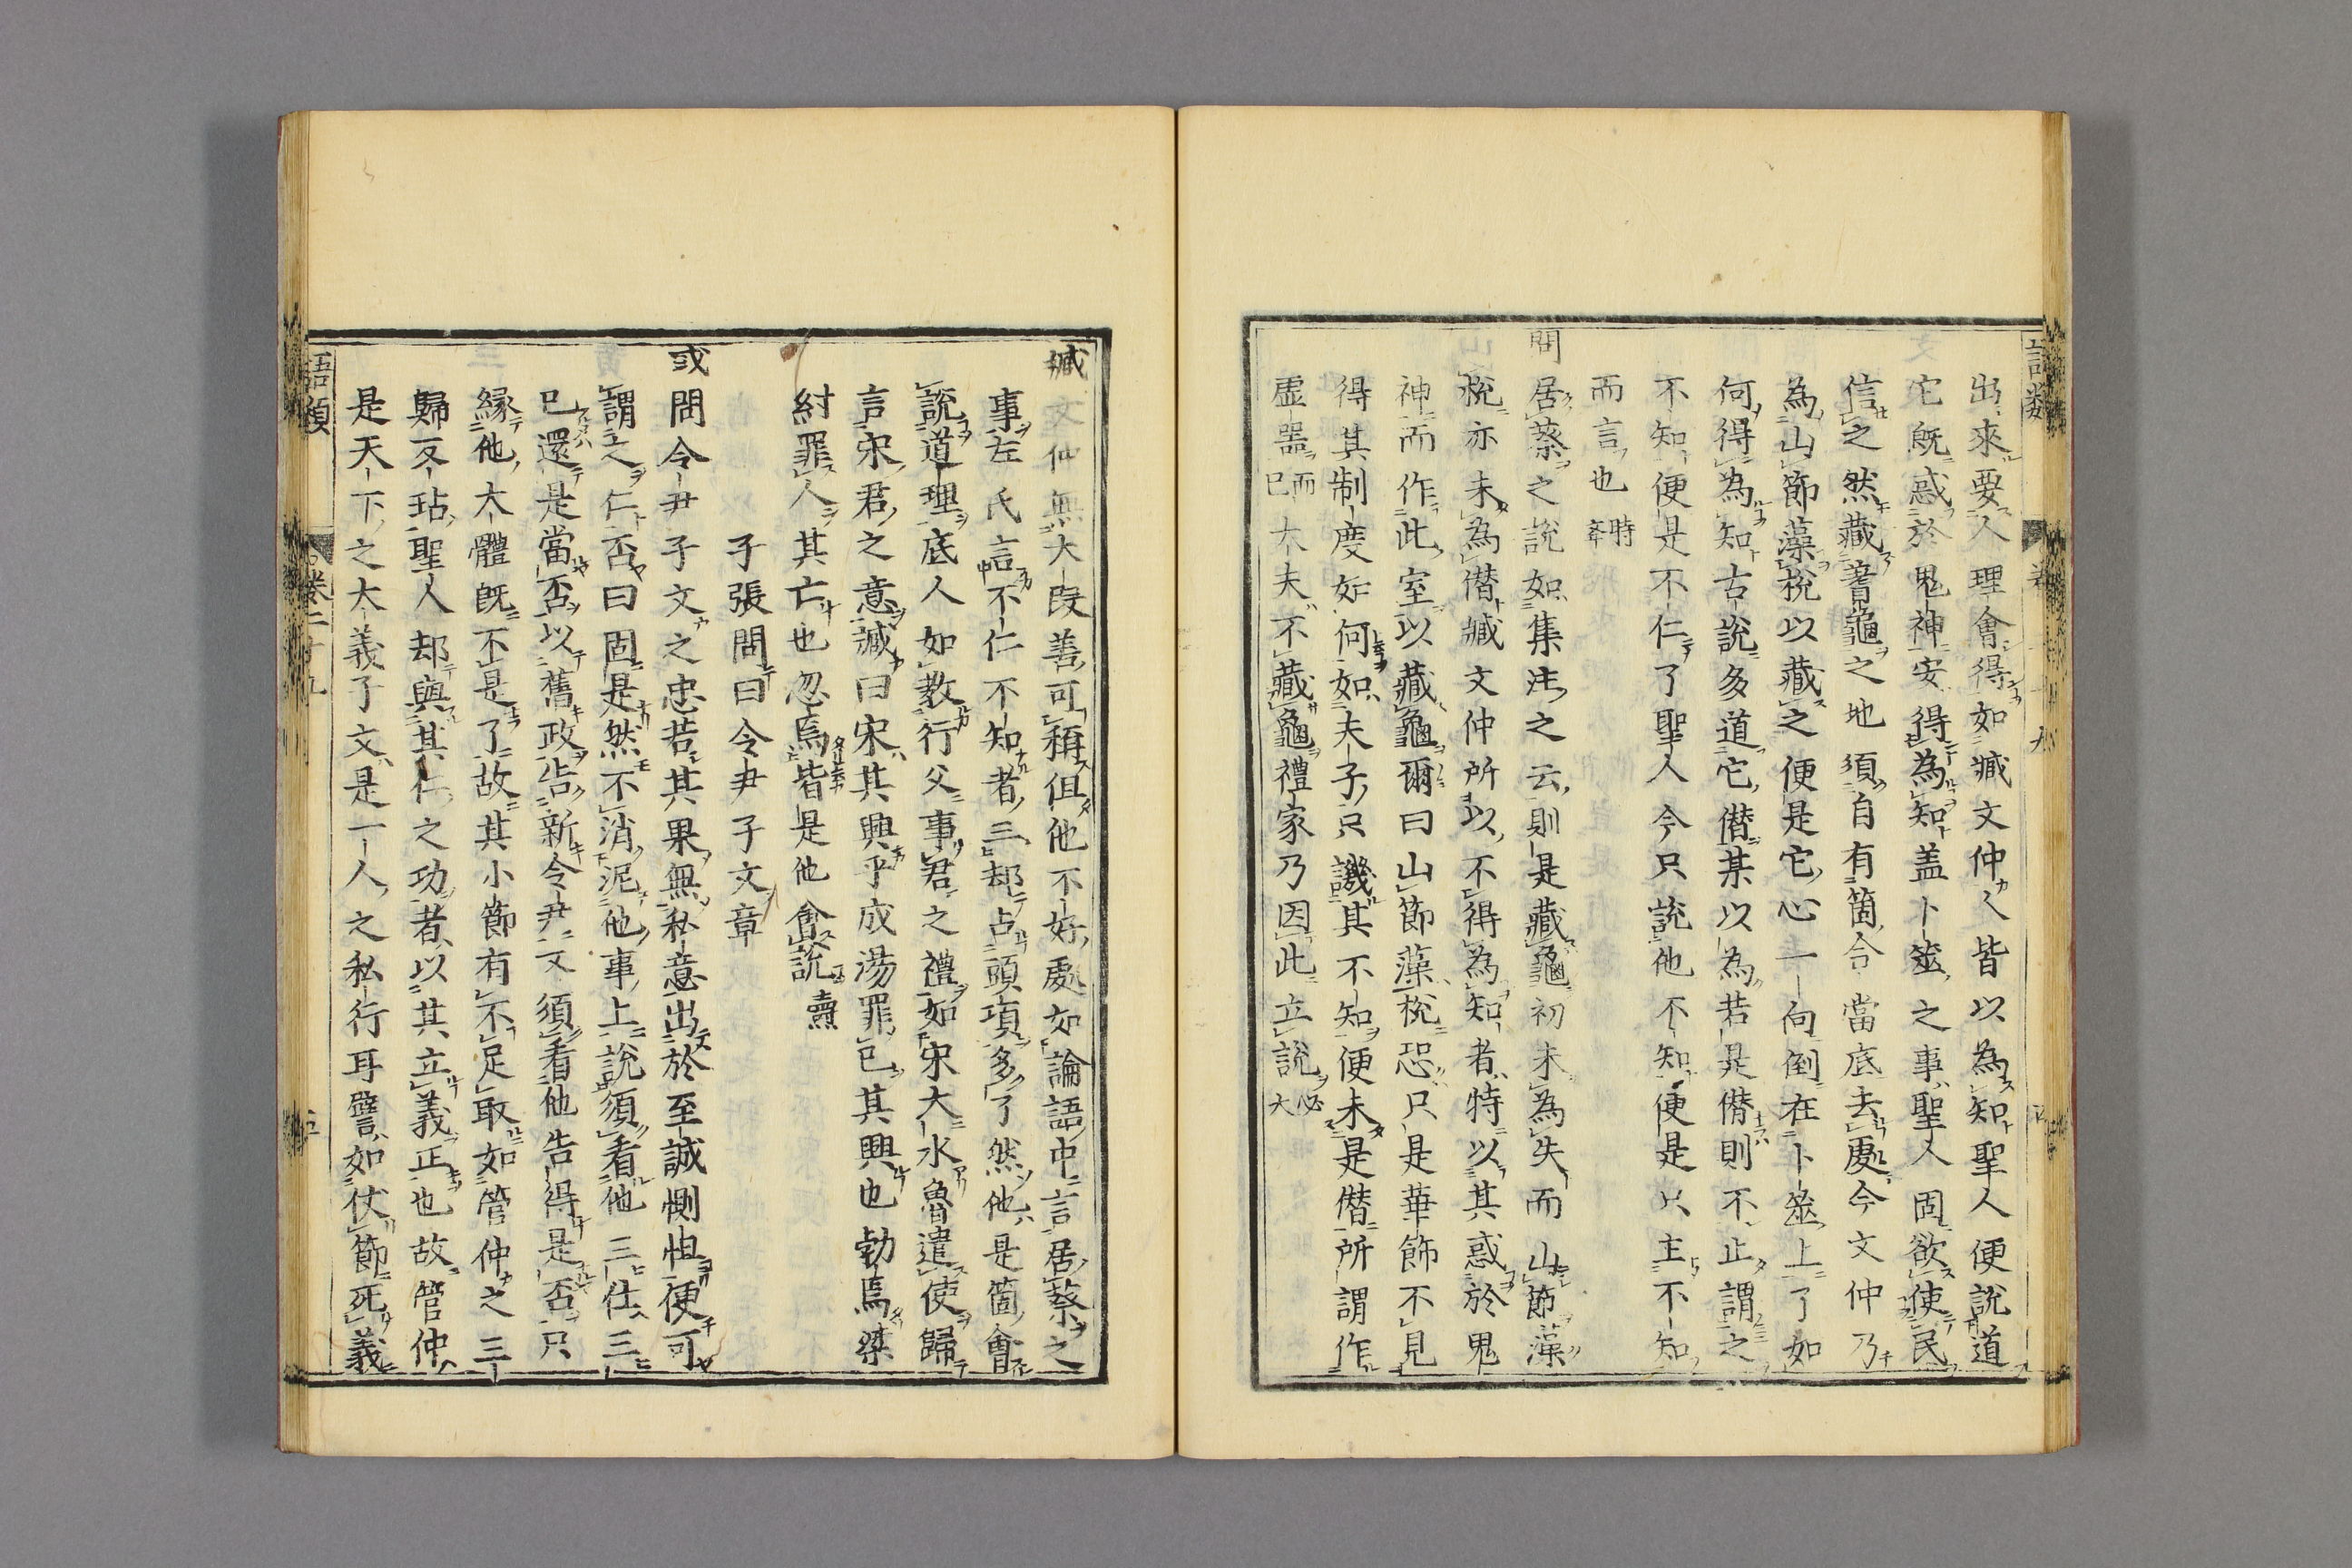 出來要人理會得如臧文仲人皆以為知聖人便說道
它旣惑於鬼神安得為知盖卜筮之事聖人固欲使民
信之然藏蓍龜之地須自有箇合當底去處今文仲乃
為山節藻梲以藏之便是它心一向倒在卜筮上了如
何得為知古說多道它僭某以為若是僭則不止謂之
不知便是不仁了聖人今只說他不知便是只主不知
而言也 時舉
問居蔡之說如集注之云則是藏龜初未為失而山節藻
梲亦未為僭臧文仲所以不得為知者特以其惑於鬼
神而作此室以藏龜爾曰山節藻梲恐只是華飾不見
得其制度如何如夫子只譏其不知便未是僭所謂作
虛器而已大夫不藏龜禮家乃因此立說 必大
臧文仲無大段善可稱但他不好處如論語中言居蔡之
事左氏言不仁不知者三却占頭項多了然他是箇會
說道理底人如敎行父事君之禮如宋大水魯遣使歸
言宋君之意臧曰宋其興乎成湯罪已其興也勃焉桀
紂罪人其亡也忽焉皆是他會說 燾
子張問曰令尹子文章
或問令尹子文之忠若其果無私意出於至誠惻怛便可
謂之仁否曰固是然不消泥他事上說須看他三仕三
已還是當否以舊政告新令尹又須看他告得是否只
緣他大體旣不是了故其小節有不足取如管仲之三
歸反坫聖人却與其仁之功者以其立義正也故管仲
是天下之大義子文是一人之私行耳譬如仗節死義
語類 卷二十九 五